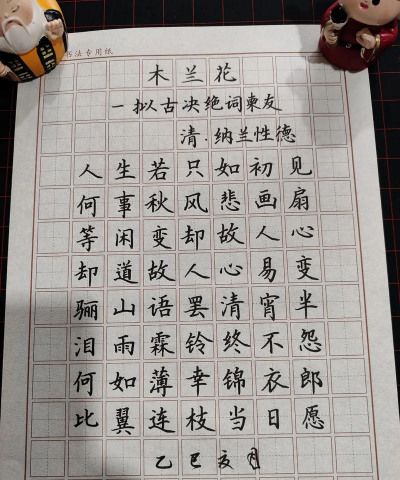 书法专用纸
木兰花
一拟古决绝词柬友
清.纳兰性德
人生若只如初见
何事秋风悲画扇
等闲变却故人心
却道故人心易变
骊山语罢清宵半
泪雨霖铃终不怨
何如薄幸锦衣郎
比翼连枝当日愿
乙巳亥月